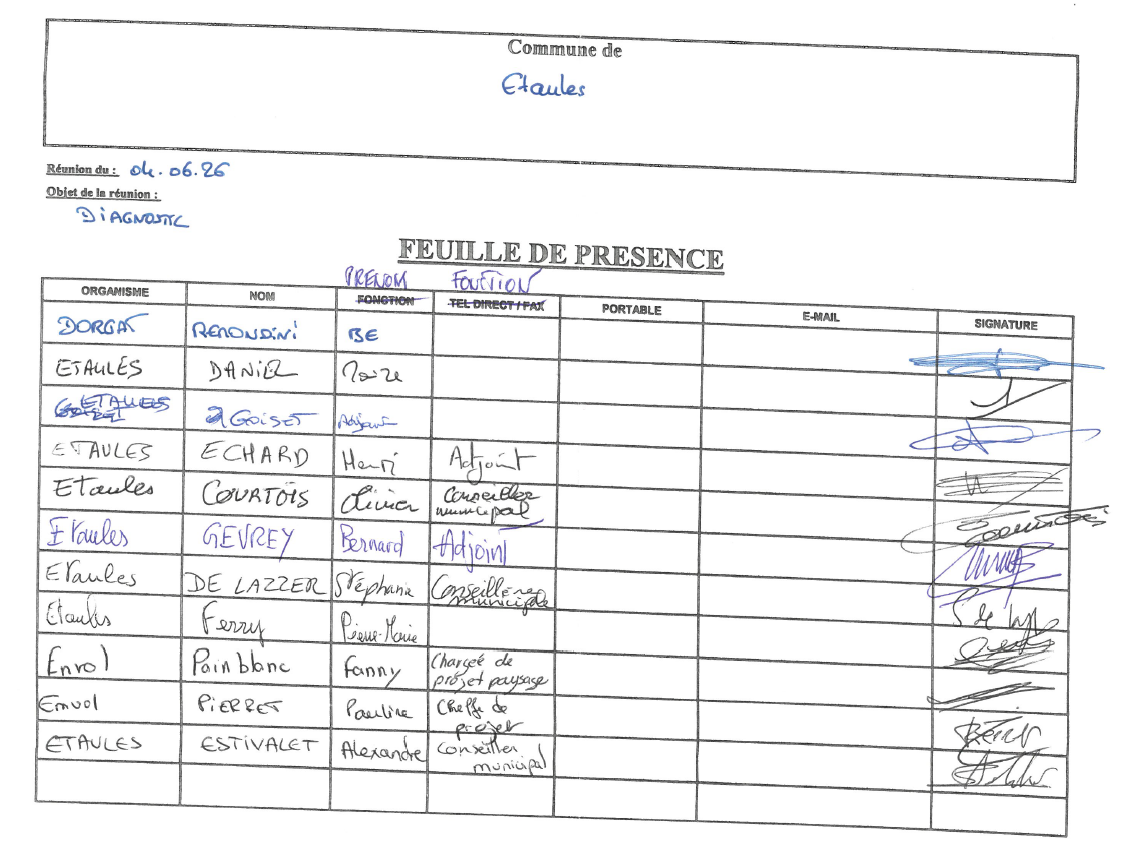 Commune de
Etaules
Réunion du : 04.06.26
Objet de la réunion :
DIAGNOSTIC
FEUILLE DE PRESENCE
PRENOM FONCTION
ORGANISME NOM FONCTION TEL DIRECT / FAX PORTABLE E-MAIL SIGNATURE
DORGAT REMONDINI BE
ETAULES DANIEL Maire
ETAULES AGOISET Adjoint
ETAULES ECHARD Henri Adjoint
Etaules COURTOIS Olivier Conseiller
municipal
Etaules GEVREY Bernard Adjoint
Etaules DE LAZZER Stéphanie Conseillère
municipale
Etaules Ferry Pierre-Marie
Envol Painblanc Fanny Chargée de
projet paysage
Envol PIERRET Pauline Cheffe de
projet
ETAULES ESTIVALET Alexandre Conseiller
municipal